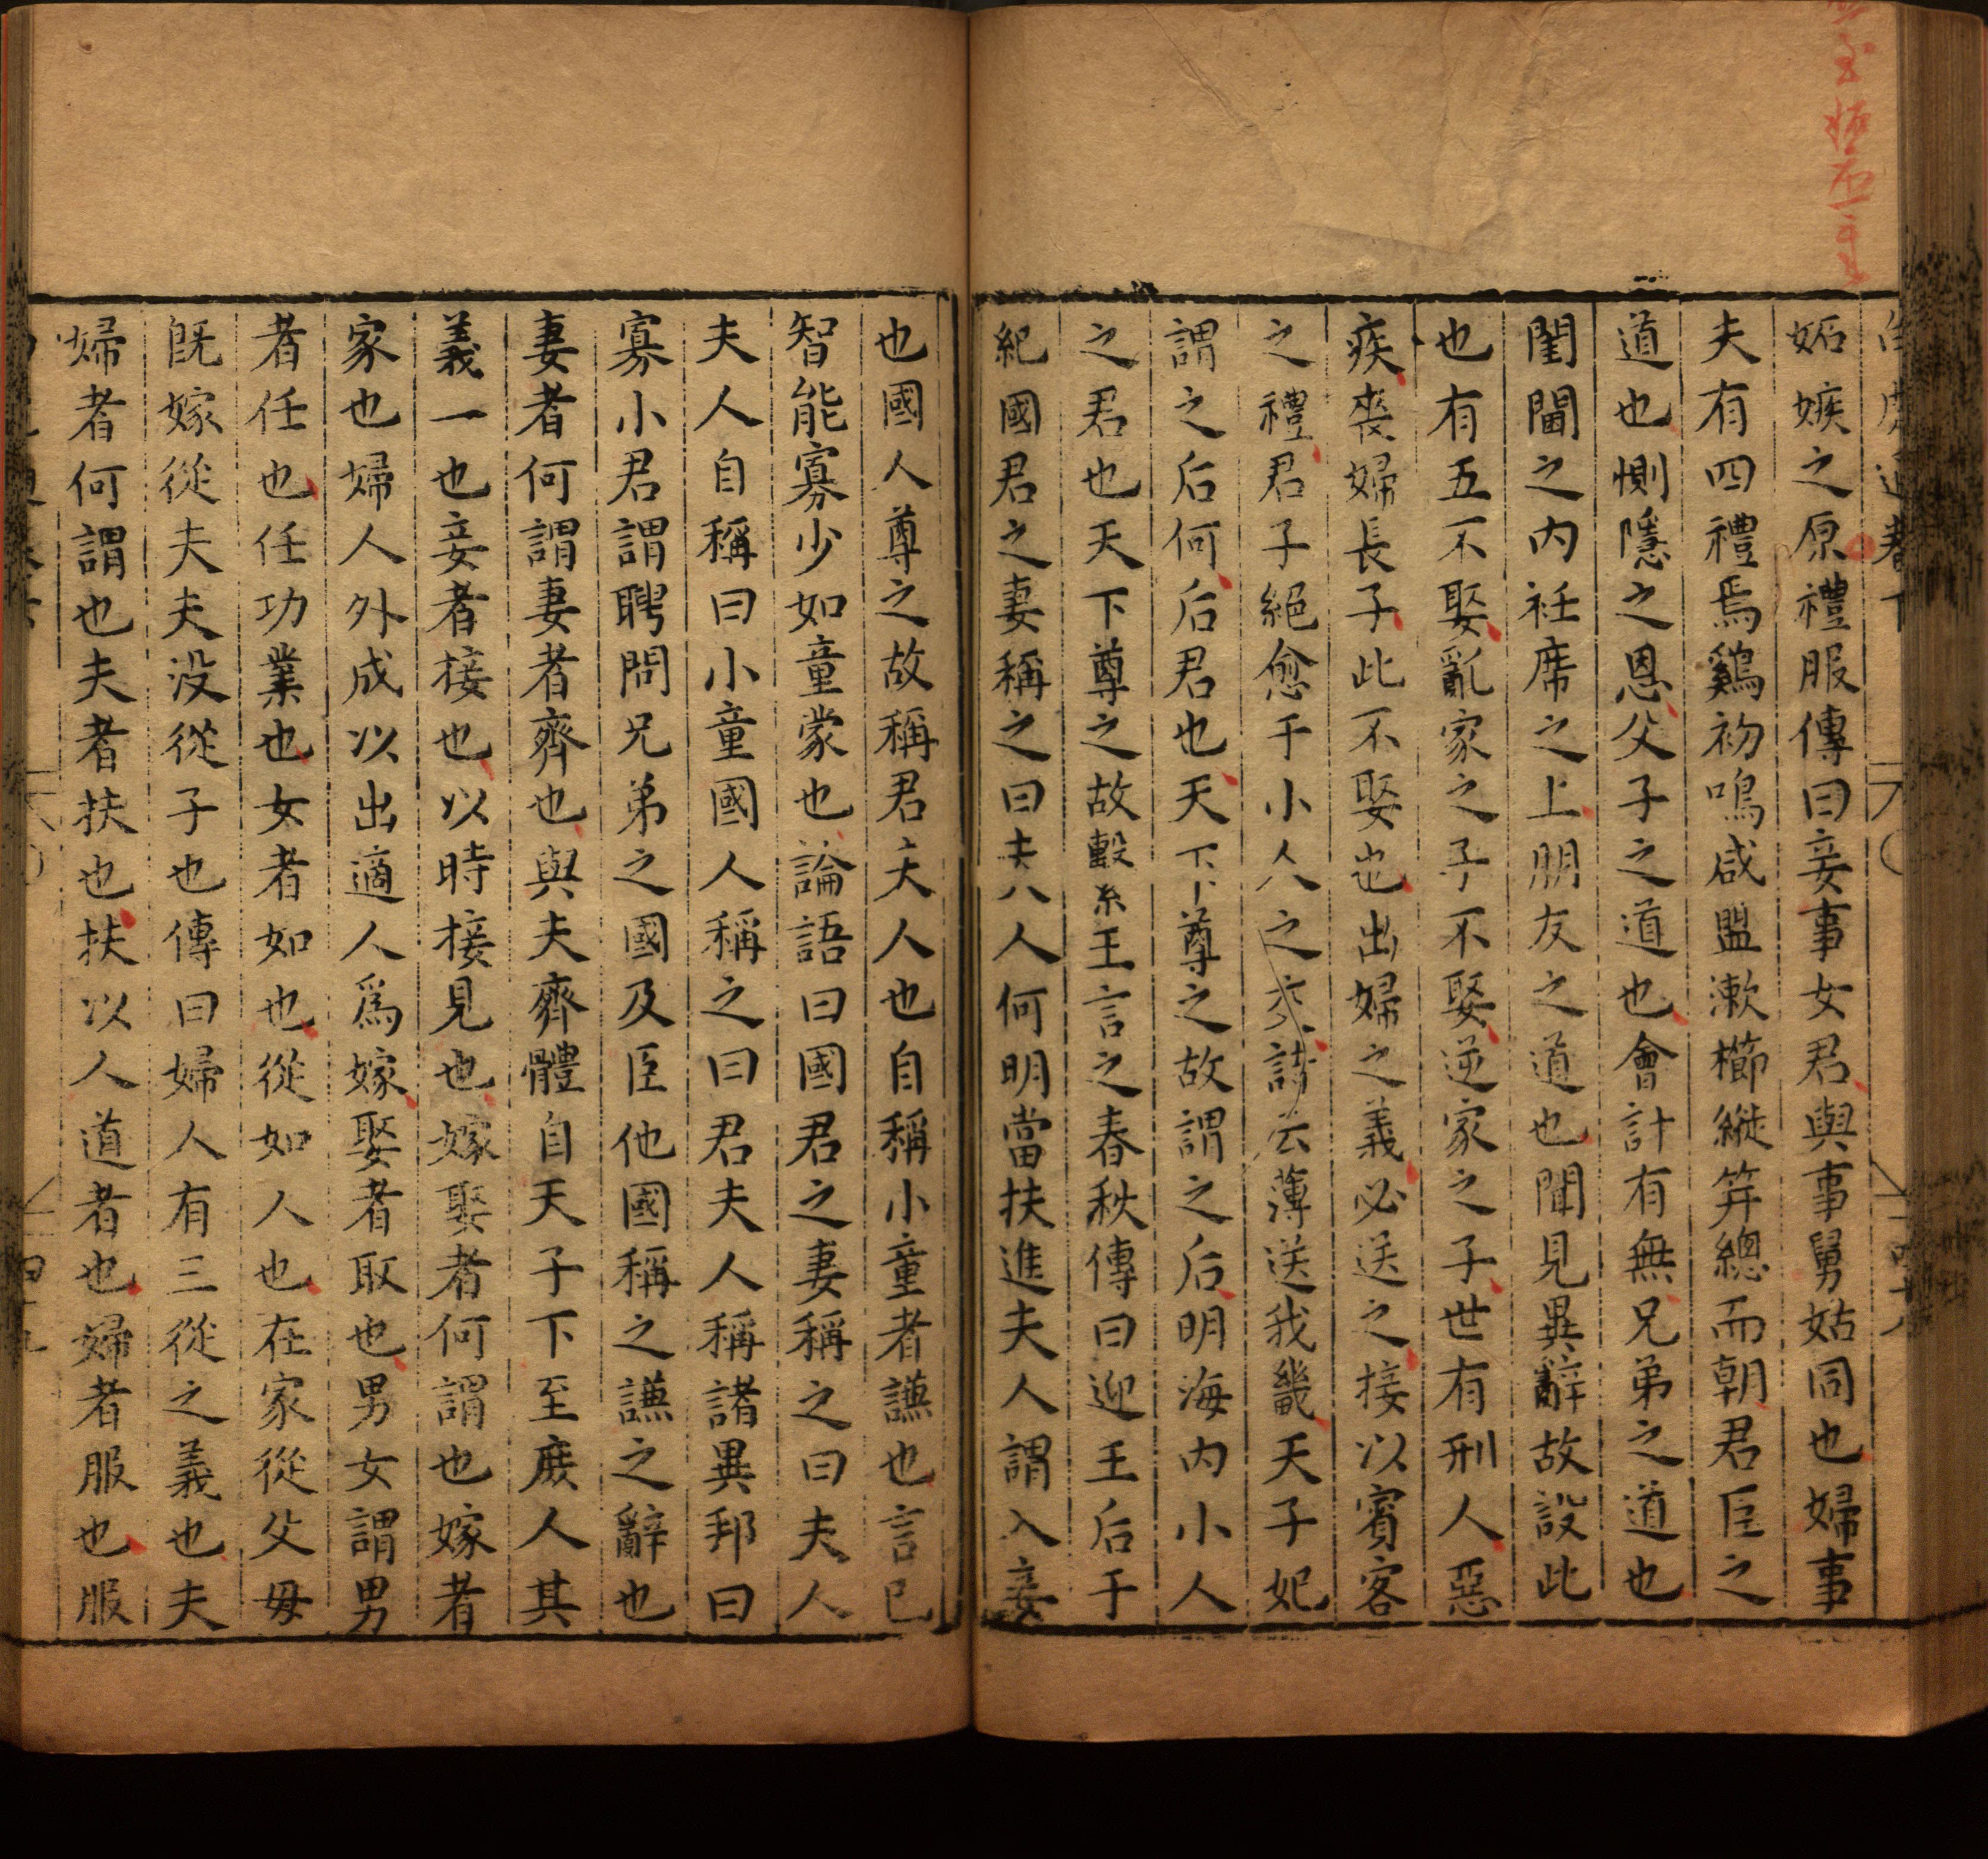 妬嫉之原禮服傳曰妾事女君與事舅姑同也婦事
夫有四禮焉鷄初鳴咸盥漱櫛縰笄總而朝君臣之
道也惻隱之恩父子之道也會計有無兄弟之道也
閨閫之内袵席之上朋友之道也聞見異辭故設此
也有五不娶亂家之子不娶逆家之子世有刑人惡
疾喪婦長子此不娶也出婦之義必送之接以賓客
之禮君子絕愈于小人之交詩云薄送我畿天子妃
謂之后何后君也天下尊之故謂之后明海内小人
之君也天下尊之故繫王言之春秋傳曰迎王后于
紀國君之妻稱之曰夫人何明當扶進夫人謂入妾
也國人尊之故稱君夫人也自稱小童者謙也言已
智能寡少如童蒙也論語曰國君之妻稱之曰夫人
夫人自稱曰小童國人稱之曰君夫人稱諸異邦曰
寡小君謂聘問兄弟之國及臣他國稱之謙之辭也
妻者何謂妻者齊也與夫齊體自天子下至庶人其
義一也妾者接也以時接見也嫁娶者何謂也嫁者
家也婦人外成以出適人爲嫁娶者取也男女謂男
者任也任功業也女者如也從如人也在家從父毋
旣嫁從夫夫没從子也傳曰婦人有三從之義也夫
婦者何謂也夫者扶也扶以人道者也婦者服也服